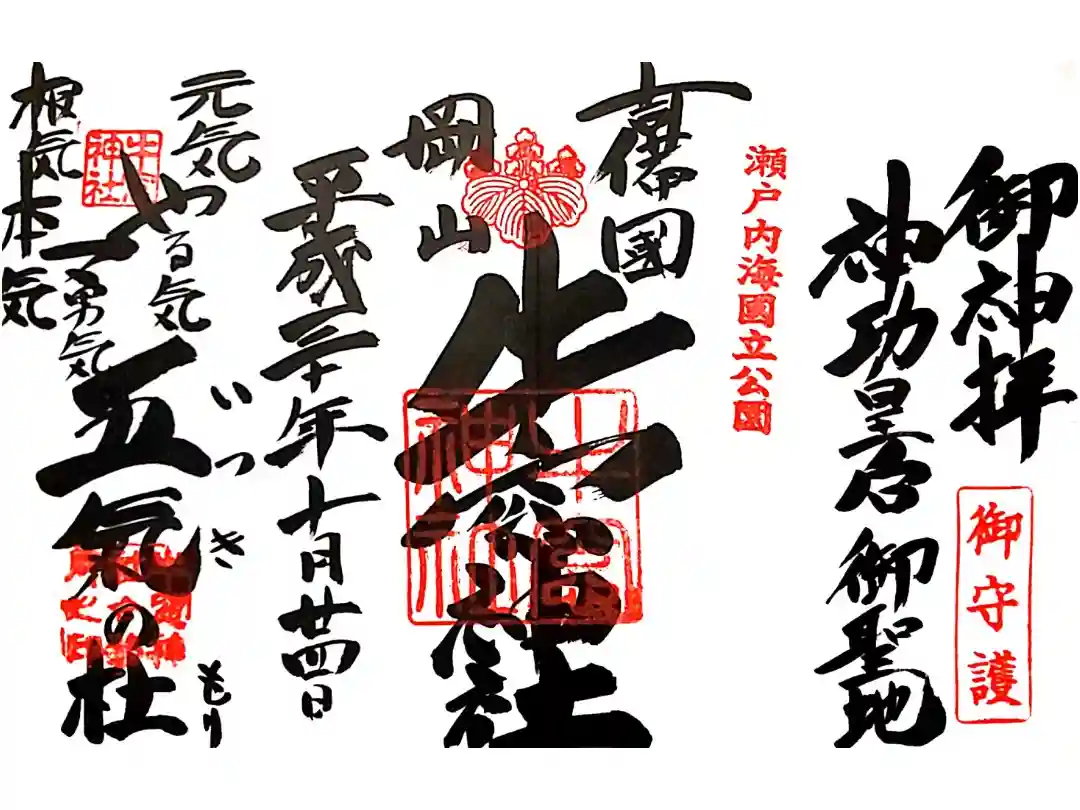 御神拝
御守護
神功皇后御聖地
瀬戸内海國立公園
吉備國
岡山
牛窓神社
牛窓神社
平成三十年十月廿四日
元気
やる気
勇気
根気
本気
牛窓神社
五気の杜
いつき
もり